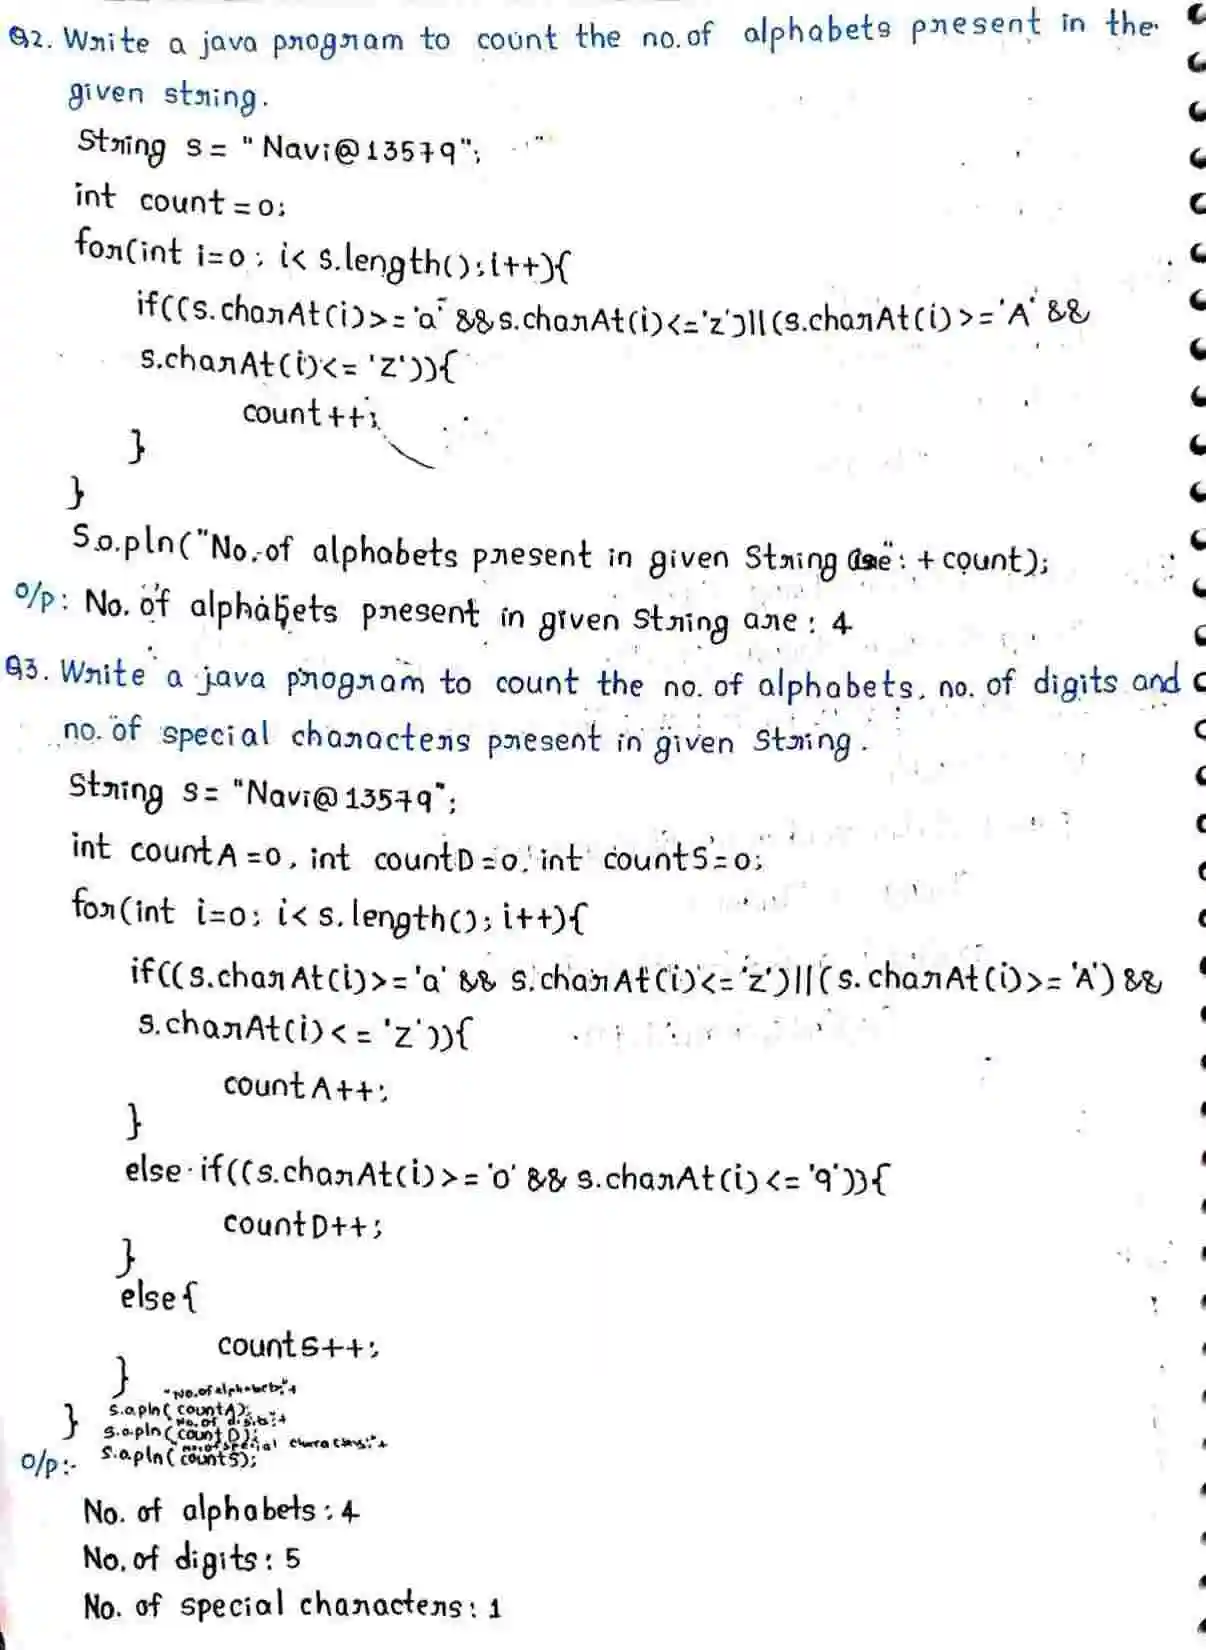 Q2. Write a java program to count the no. of alphabets present in the
given string.
String s = "Navi@13579";
int count = 0;
for(int i=0; i< s.length();i++){
if((s.charAt(i)>='a' && s.charAt(i)<='z')||(s.charAt(i)>='A' &&
s.charAt(i)<= 'Z')){
count++;
}
}
S.o.pln("No. of alphabets present in given String are": + count);
O/p: No. of alphabets present in given String are: 4
Q3. Write a java program to count the no. of alphabets, no. of digits and
no. of special characters present in given String.
String s = "Navi@13579";
int countA=0, int countD=0, int countS=0;
for(int i=0; i< s.length(); i++){
if((s.charAt(i)>='a' && s.charAt(i)<='z')||(s.charAt(i)>= 'A') &&
s.charAt(i)<= 'Z')){
countA++;
}
else if((s.charAt(i)>= '0' && s.charAt(i)<= '9')){
countD++;
}
else{
countS++;
}
"No. of alphabets:"+
} S.o.pln(countA);
"No. of digits:"+
S.o.pln(countD);
"no. of special characters:"+
S.o.pln(countS);
O/p:-
No. of alphabets: 4
No. of digits: 5
No. of special characters: 1